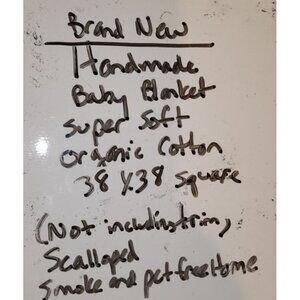 Brand New
Handmade
Baby Blanket
super soft
organic Cotton
38 X 38 square
(Not including trim)
Scalloped
Smoke and pet free Home